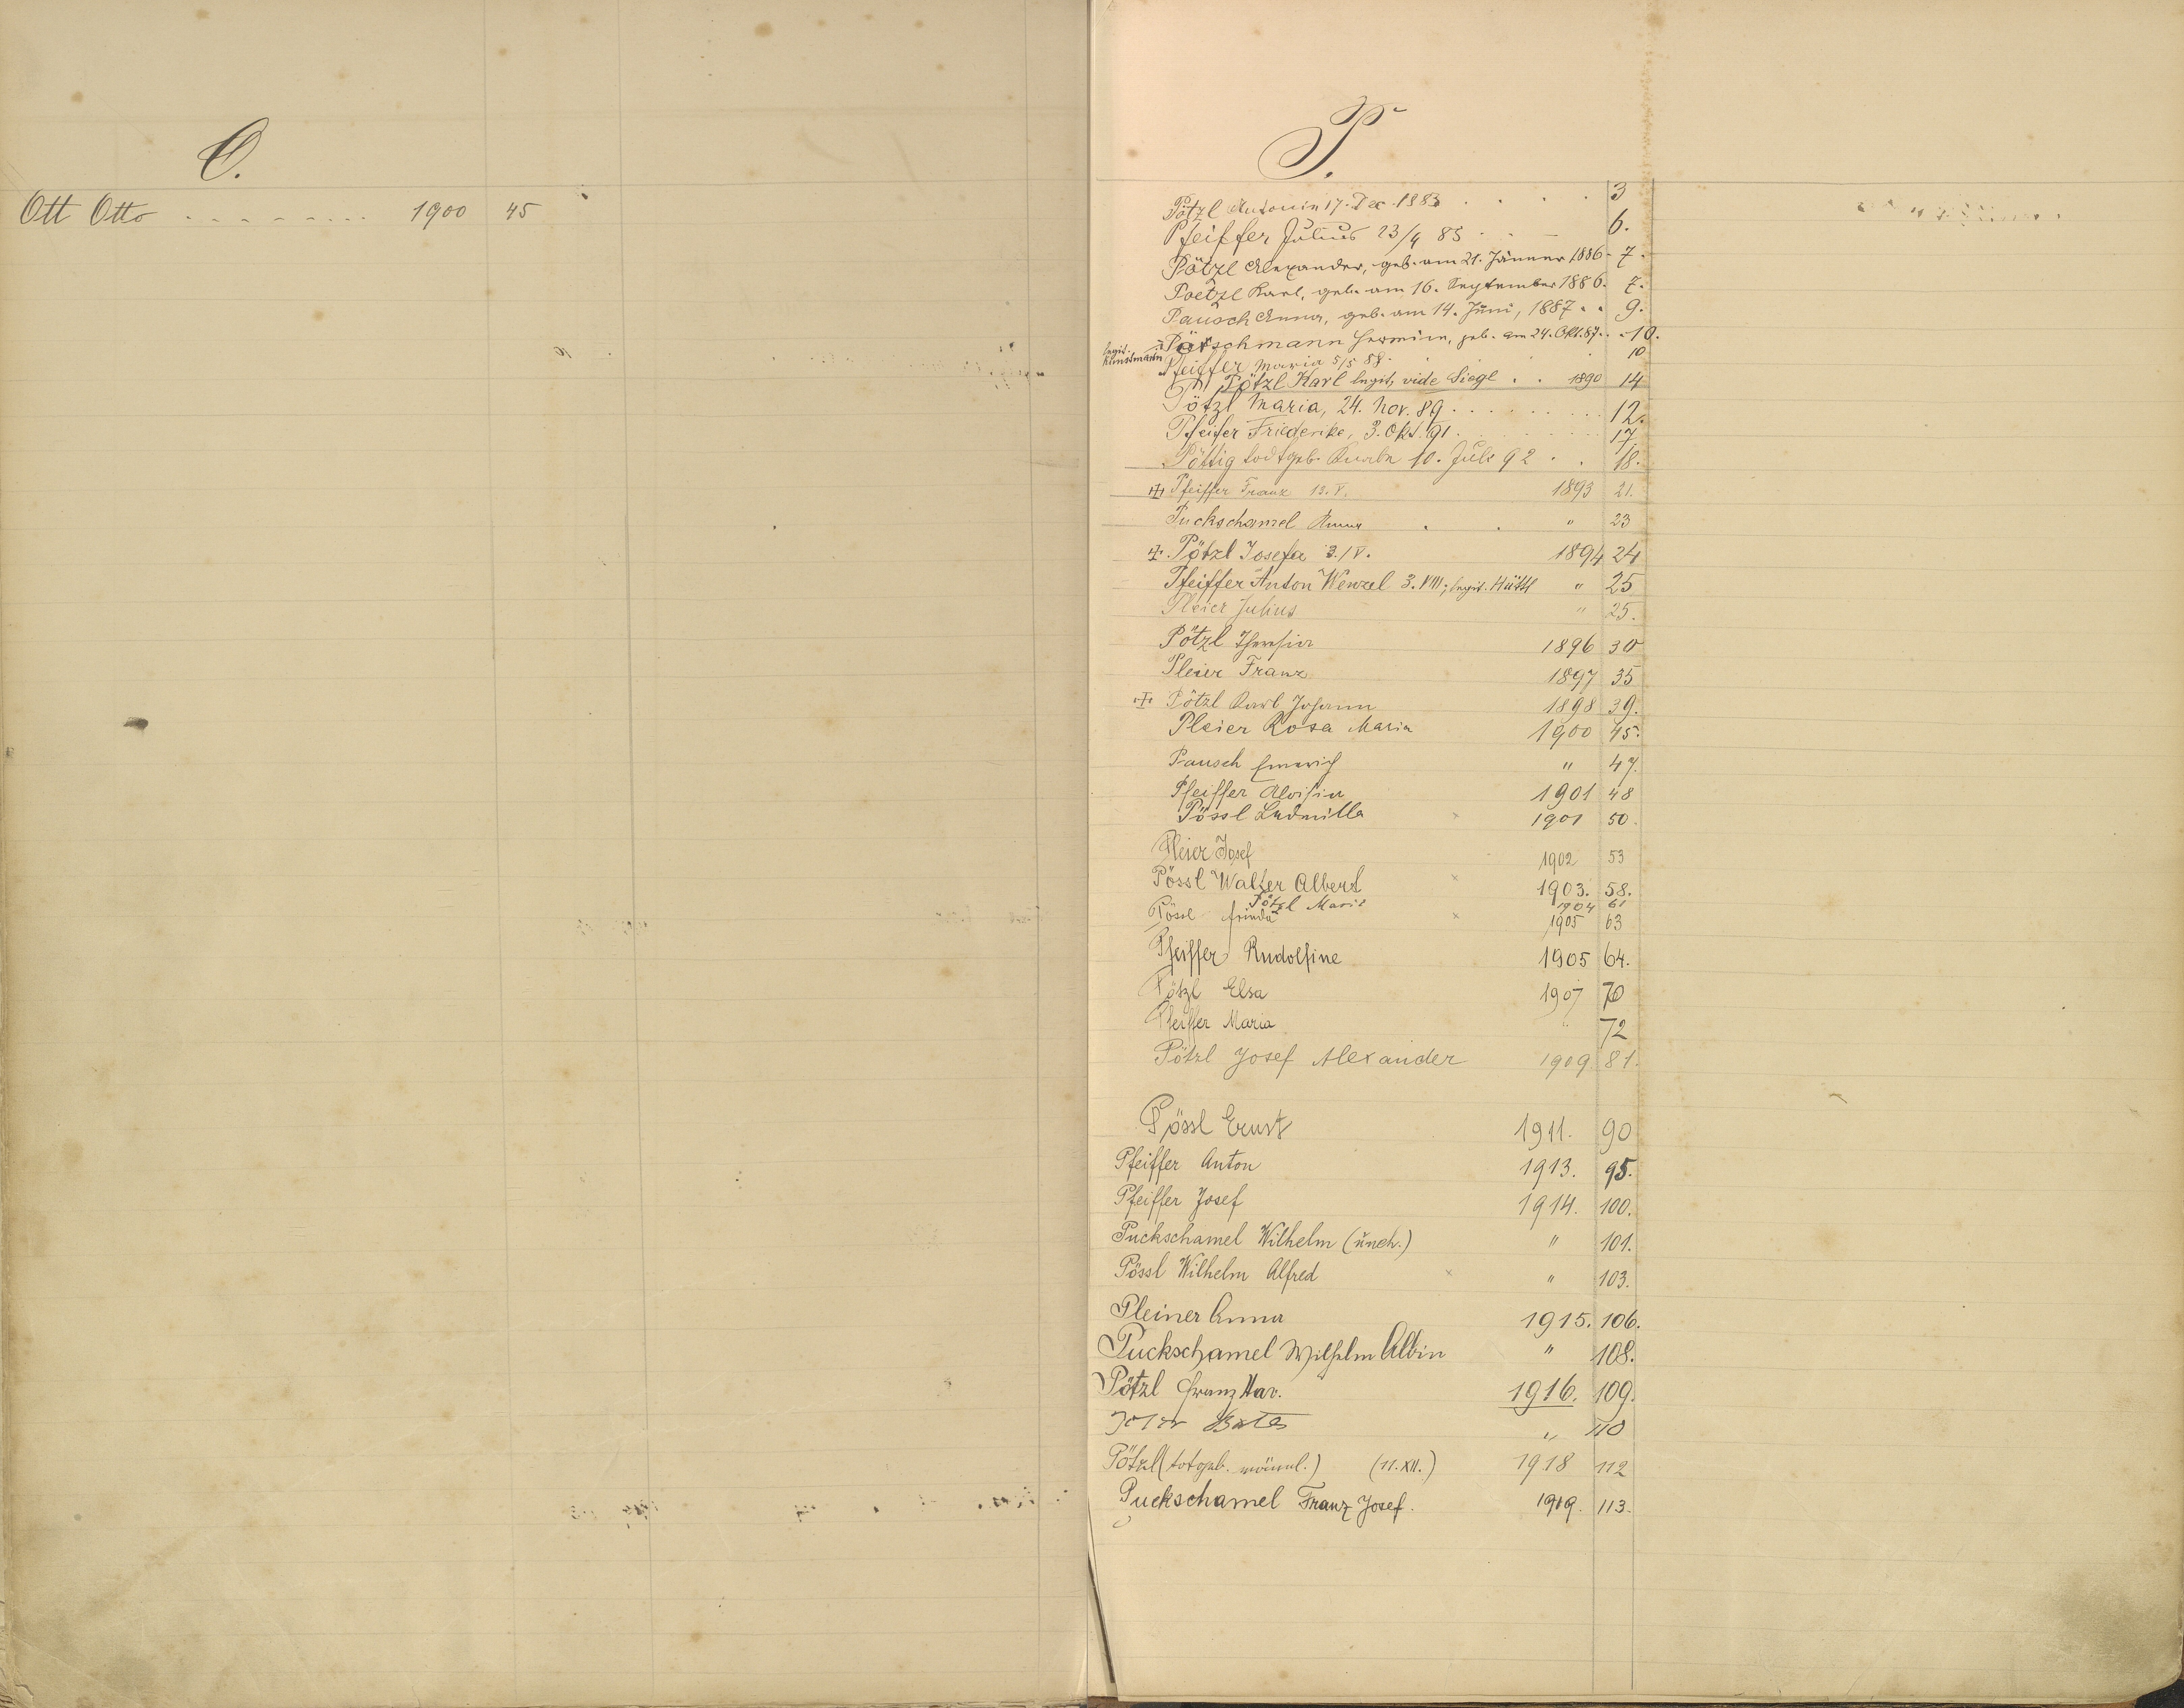 O.
Ott Otto . . . . . . . . . 1900 45
P.
Pötzl Antonin 17. Dec. 1883 . . . . 3
Pfeiffer Julius 23/4 85 . . — 6.
Pötzl Alexander, geb. am 21. Jänner 1886 . 7.
Poetzl Karl, geb. am 16. September 1886. 7.
Pausch Anna, geb. am 14. Juni, 1887 . . 9.
Pörschmann Hermine, geb. am 24. Okt. 87. . . 10.
legit. Kunstmann
Pfeiffer Maria 5/5 88. 10
Pötzl Karl legit, vide Siegl . . 1890 14
Pötzl Maria, 24. Nov. 89 . . . . . . . . . 12.
Pfeifer Friederike, 3. Okt. 91 . . . . . . . . 17.
Pöttig todtgeb. Knabe 10. Juli 92 . . 18.
Pfeiffer Franz 13. V. 1893 21.
Puckschamel Anna . . " 23
Pötzl Josefa 3. IV. 1894 24
Pfeiffer Anton Wenzel 3. VIII; legit. Hüttl " 25
Pleier Julius " 25.
Pötzl Theresia 1896 30
Pleier Franz 1897 35
Pötzl Karl Johann 1898 39.
Pleier Rosa Maria 1900 45.
Pausch Emerich " 47.
Pfeiffer Aloisia 1901 48
Pössl Ludmilla × 1901 50.
Pleier Josef 1902 53
Pössl Walter Albert × 1903. 58.
Pötzl Marie 1904 61
Pössl Frieda × 1905 63
Pfeiffer Rudolfine 1905 64.
Pötzl Elsa 1907 70
Pfeiffer Maria " 72
Pötzl Josef Alexander 1909 81.
Pössl Ernst 1911. 90
Pfeiffer Anton 1913. 95.
Pfeiffer Josef 1914. 100.
Puckschamel Wilhelm (uneh.) " 101.
Pössl Wilhelm Alfred × " 103.
Pleiner Anna 1915. 106.
Puckschamel Wilhelm Albin " 108.
Pötzl Franz Xav. 1916. 109.
" 110
Pötzl (totgeb. männl.) (11. XII.) 1918 112
Puckschamel Franz Josef. 1919. 113.